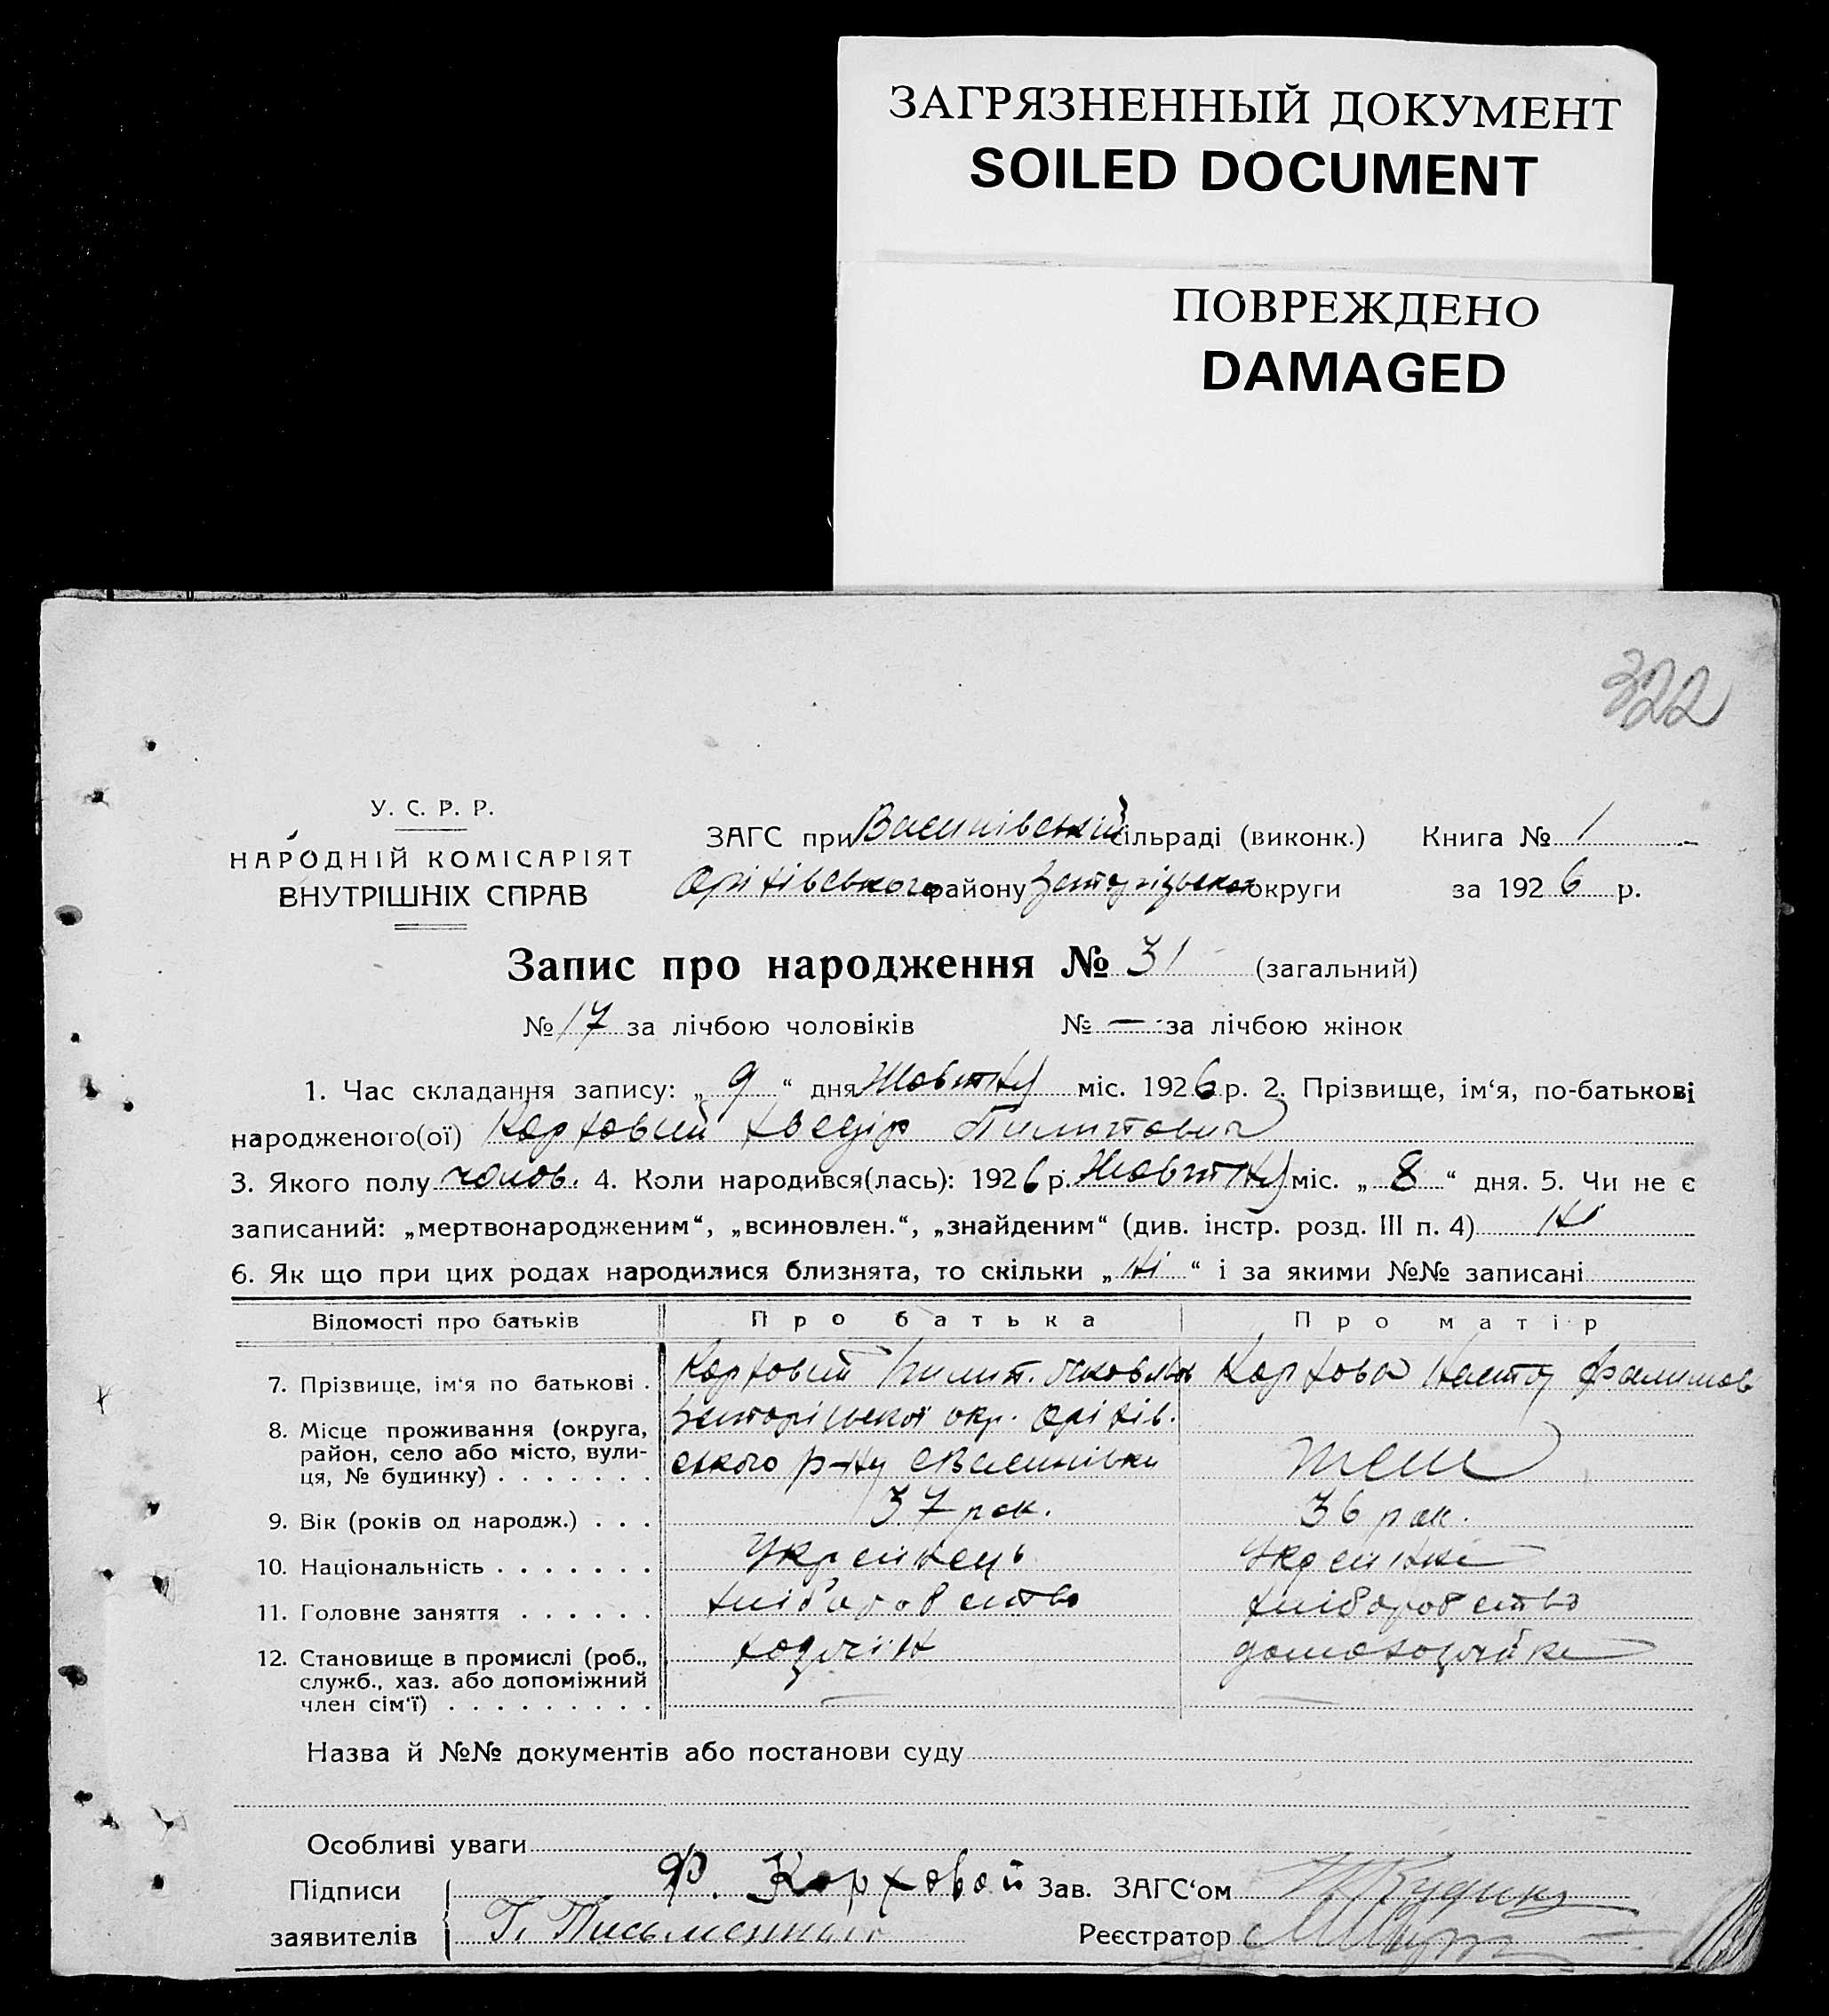 ЗАГРЯЗНЕННЫЙ ДОКУМЕНТ
SOILED DOCUMENT
ПОВРЕЖДЕНО
DAMAGED
322
У. С. Р. Р.
НАРОДНІЙ КОМІСАРІЯТ
ВНУТРІШНІХ СПРАВ
ЗАГС при Василівській сільраді (виконк.) Книга № 1
Оріхівського району Запорізької округи за 1926 р.
Запис про народження № 31 (загальний)
№ 17 за лічбою чоловіків № — за лічбою жінок
1. Час складання запису: „ 9 “ дня Жовтня міс. 1926 р. 2. Прізвище, ім‘я, по-батькові
народженого(ої) Корховий Хведір Пилипович
3. Якого полу чолов. 4. Коли народився(лась): 1926 р. Жовтня міс. „ 8 “ дня. 5. Чи не є
записаний: „мертвонародженим“, „всиновлен.“, „знайденим“ (див. інстр. розд. III п. 4) Ні
6. Як що при цих родах народилися близнята, то скільки „ Ні “ і за якими №№ записані
Відомості про батьків Про батька Про матір
7. Прізвище, ім‘я по батькові . Корховий Пилип. Яковлев Корхова Настя
8. Місце проживання (округа, Запорізької окр. Оріхів.
район, село або місто, вули- ського р-ну с Василівки там
ця, № будинку) . . . . . . .
9. Вік (років од народж.) . . . 37 рок. 36 рок.
10. Національність . . . . . . . Українець Українка
11. Головне заняття . . . . . . хліборобство хліборобство
12. Становище в промислі (роб., хазяїн домохазяйка
служб., хаз. або допоміжний
член сім‘ї) . . . . . . . . .
Назва й №№ документів або постанови суду
Особливі уваги
Підписи Ф. Корховой Зав. ЗАГС‘ом
заявителів Г. Письменный Реєстратор